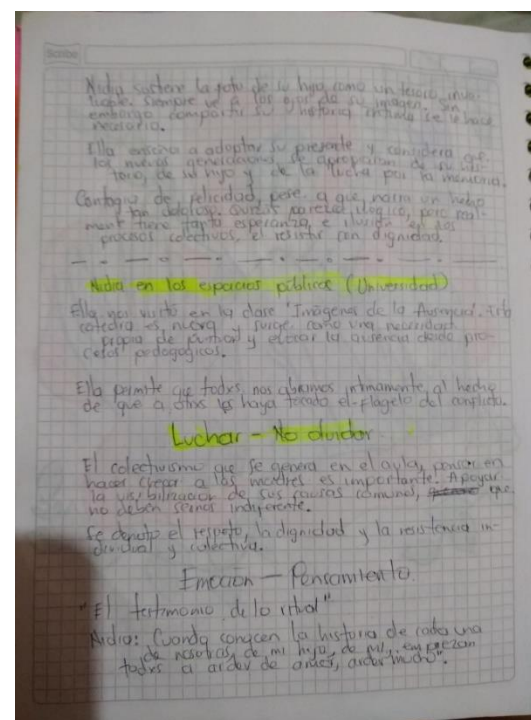 Scribe
Nidia sostiene la foto de su hijo, como un tesoro inva
luable. Siempre ve a los ojos de su imagen. Sin
embargo compartir su historia se le hace
necesario.
Ella enseña a adoptar su presente y considera que
las nuevas generaciones, se apropiaran de su
de su hijo y de la lucha por la memoria.
Contagia de felicidad, pese a que, narra un hecho
tan doloroso. Suele parecer ilógico, pero real-
ment tiene tanta esperanza, e ilusión en los
procesos colectivos, el resistir con dignidad.
Nidia en los espacios públicos (Universidad)
Ella nos visitó en la clase "Imágenes de la Ausencia". Esta
cátedra es nueva y surge como una necesidad
propia de pensar y la ausencia desde pro-
cesos pedagógicos.
Ella permite que todxs, nos abramos íntimamente al hecho
de que a otrxs les haya tocado el flagelo del conflicto.
Luchar - No olvidar
El colectivismo que se genera en el aula, pensar en
hacer crecer a las madres es importante. Apoyar
la visibilización de sus causas comunes, que
no deben sernos indiferente.
Se denota el respeto, la dignidad y la resistencia in-
dividual y colectiva.
Emoción - Pensamiento
"El testimonio de lo ritual"
Nidia: Cuando conocen la historia de cada una
de nosotras, de mi hijo, de mi, empiezan
todxs a arder de , arder mucho".